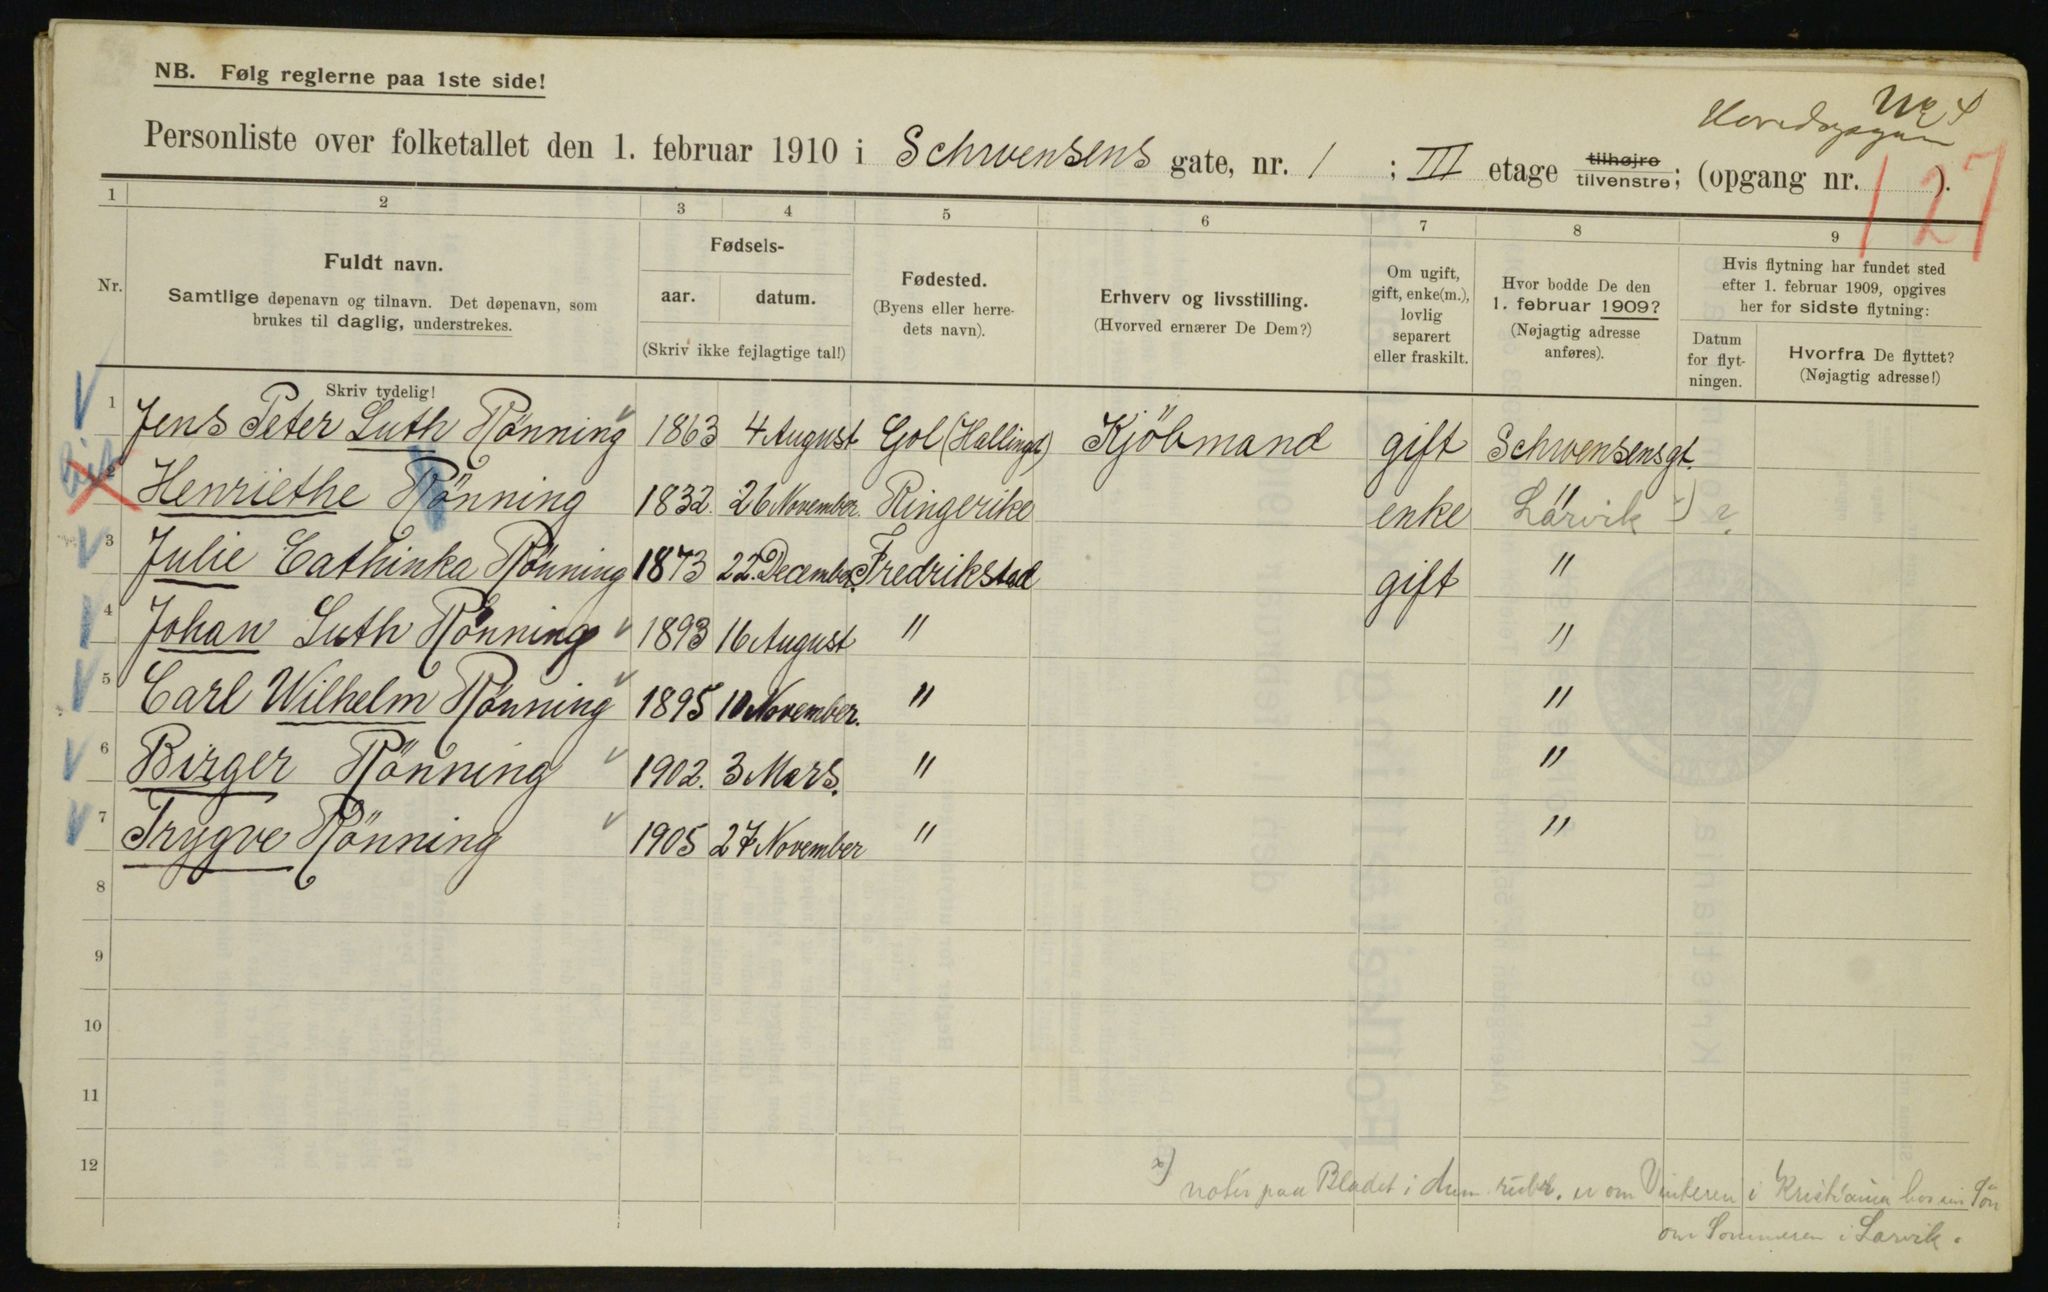 NB. Følg reglerne paa 1ste side!
Personliste over folketallet den 1. februar 1910 i Schwensens gate, nr. 1 ; III etage tilhøjre tilvenstre; (opgang nr. ).
127
1 2 3 4 5 6 7 8 9
Nr.
Fuldt navn.
Samtlige døpenavn og tilnavn. Det døpenavn, som
brukes til daglig, understrekes.
Skriv tydelig!
Fødsels-
aar. datum.
(Skriv ikke fejlagtige tal!)
Fødested.
(Byens eller herre-
dets navn).
Erhverv og livsstilling.
(Hvorved ernærer De Dem?)
Om ugift,
gift, enke(m.),
lovlig
separert
eller fraskilt.
Hvor bodde De den
1. februar 1909?
(Nøjagtig adresse
anføres).
Hvis flytning har fundet sted
efter 1. februar 1909, opgives
her for sidste flytning:
Datum
for flyt-
ningen.
Hvorfra De flyttet?
(Nøjagtig adresse!)
1 Jens Peter Luth Rönning 1863 4 August Gol (Hallingd) Kjöbmand gift Schwensensgt.
2 Henriethe Rönning 1832. 26 November. Ringerike enke " Larvik ?
3 Julie Cathinka Rönning 1873 22. December. Fredrikstad gift "
4 Johan Luth Rönning 1893 16 August " "
5 Carl Wilhelm Rönning 1895 10 November. " "
6 Birger Rönning 1902. 3 Mars. " "
7 Trygve Rönning 1905 27 November " "
8
9
10
11
12
x) paa Bladet i er om Vinteren i Kristiania hos sin Sön
om Sommeren i Larvik.